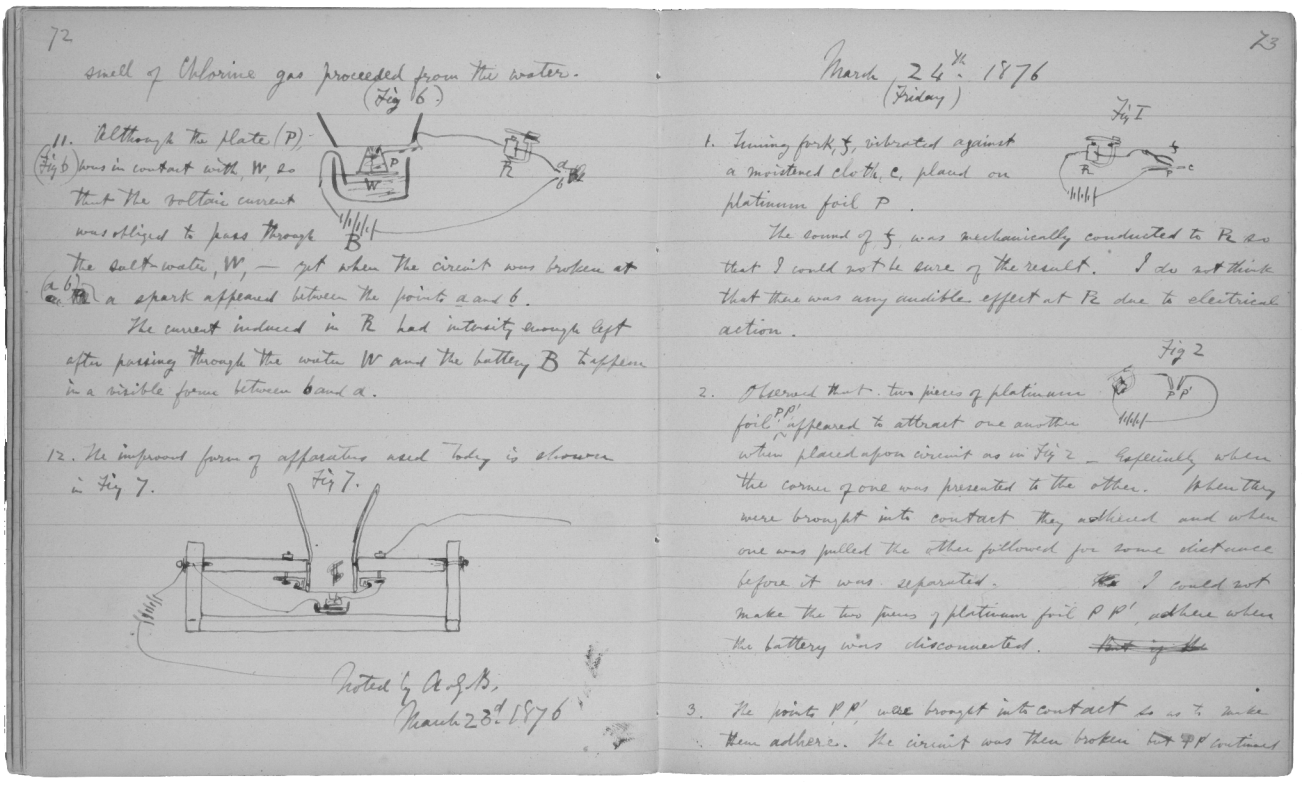 72
smell of Chlorine gas proceeded from the water.
(Fig 6)
11. Although the plate (P)
(Fig 6) was in contact with, W, so
that the voltaic current
was obliged to pass through
the salt-water, W, — yet when the circuit was broken at
(a b) a spark appeared between the points a and b.
The current induced in R had intensity enough left
after passing through the water W and the battery B to appear
in a visible form between b and a.
P
W
R
a
b
B
12. The improved form of apparatus used today is shown
in Fig 7.
Fig 7.
Noted by A.G.B.
March 23rd 1876
73
March 24th 1876
(Friday)
Fig 1
1. Tuning fork, f, vibrated against
a moistened cloth, c, placed on
platinum foil P.
R
f
c
P
The sound of f, was mechanically conducted to R so
that I could not be sure of the result. I do not think
that there was any audible effect at R due to electrical
action.
Fig 2
2. Observed that two pieces of platinum
foil PP' appeared to attract one another
P P'
when placed upon circuit as in Fig 2 — Especially when
the corner of one was presented to the other. When they
were brought into contact they adhered and when
one was pulled the other followed for some distance
before it was separated. I could not
make the two pieces of platinum foil P P' adhere when
the battery was disconnected. But if the
3. The points P P' were brought into contact so as to make
them adhere. The circuit was then broken but PP' continued